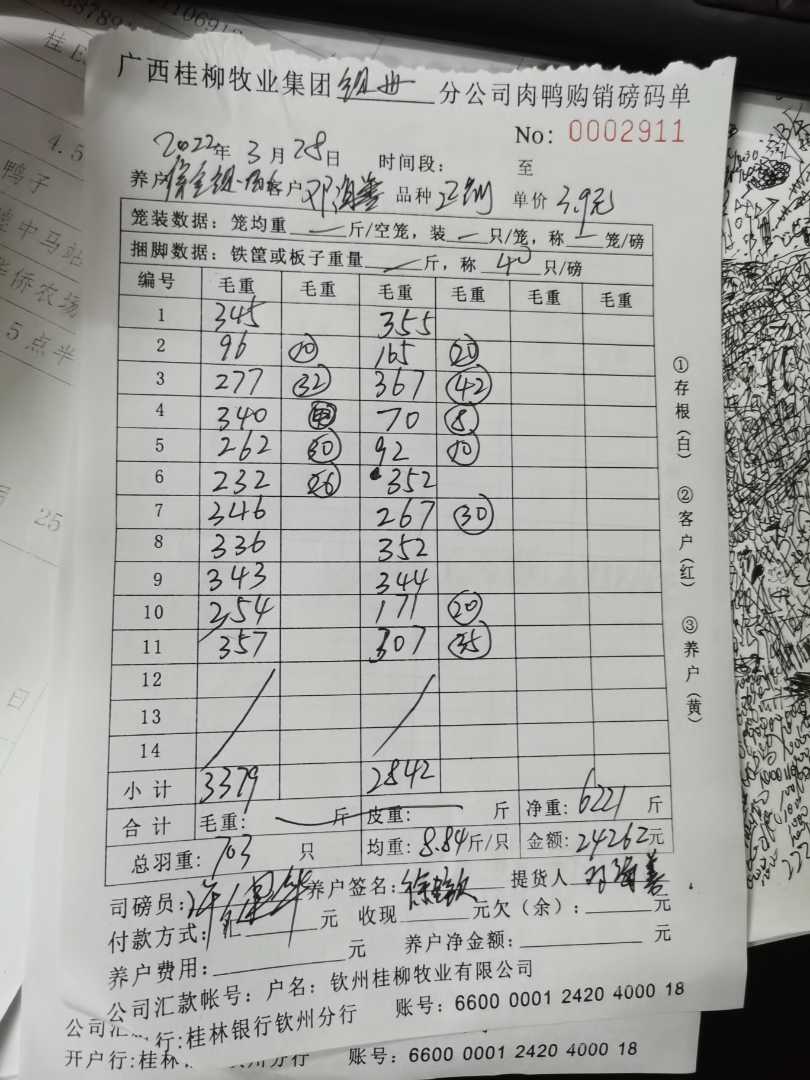 广西桂柳牧业集团 分公司肉鸭购销磅码单
No: 0002911
2022年 3月28日 时间段: 至
养户 客户 邓海善 品种 单价 3.9元
笼装数据: 笼均重 — 斤/空笼, 装 — 只/笼, 称 — 笼/磅
捆脚数据: 铁筐或板子重量 — 斤, 称 40 只/磅
编号 毛重 毛重 毛重 毛重 毛重 毛重
1 345 355
2 96 10 165 20
3 277 32 367 42
4 340 70 8
5 262 30 92 10
6 232 26 352
7 346 267 30
8 336 352
9 343 344
10 254 171 20
11 357 307 35
12
13
14
小计 3379 2842
合计 毛重: 斤 皮重: 斤 净重: 6221 斤
总羽重: 703 只 均重: 8.84斤/只 金额: 24262元
司磅员: 养户签名: 提货人 邓海善
付款方式: 汇 元 收现 元欠(余): 元
养户费用: 元 养户净金额: 元
公司汇款帐号: 户名: 钦州桂柳牧业有限公司
行:桂林银行钦州分行 账号: 6600 0001 2420 4000 18
①存根(白) ②客户(红) ③养户(黄)
公司汇
开户行:桂林 分行 账号: 6600 0001 2420 4000 18
4.5
鸭子
中马站
华侨农场
5点半
25